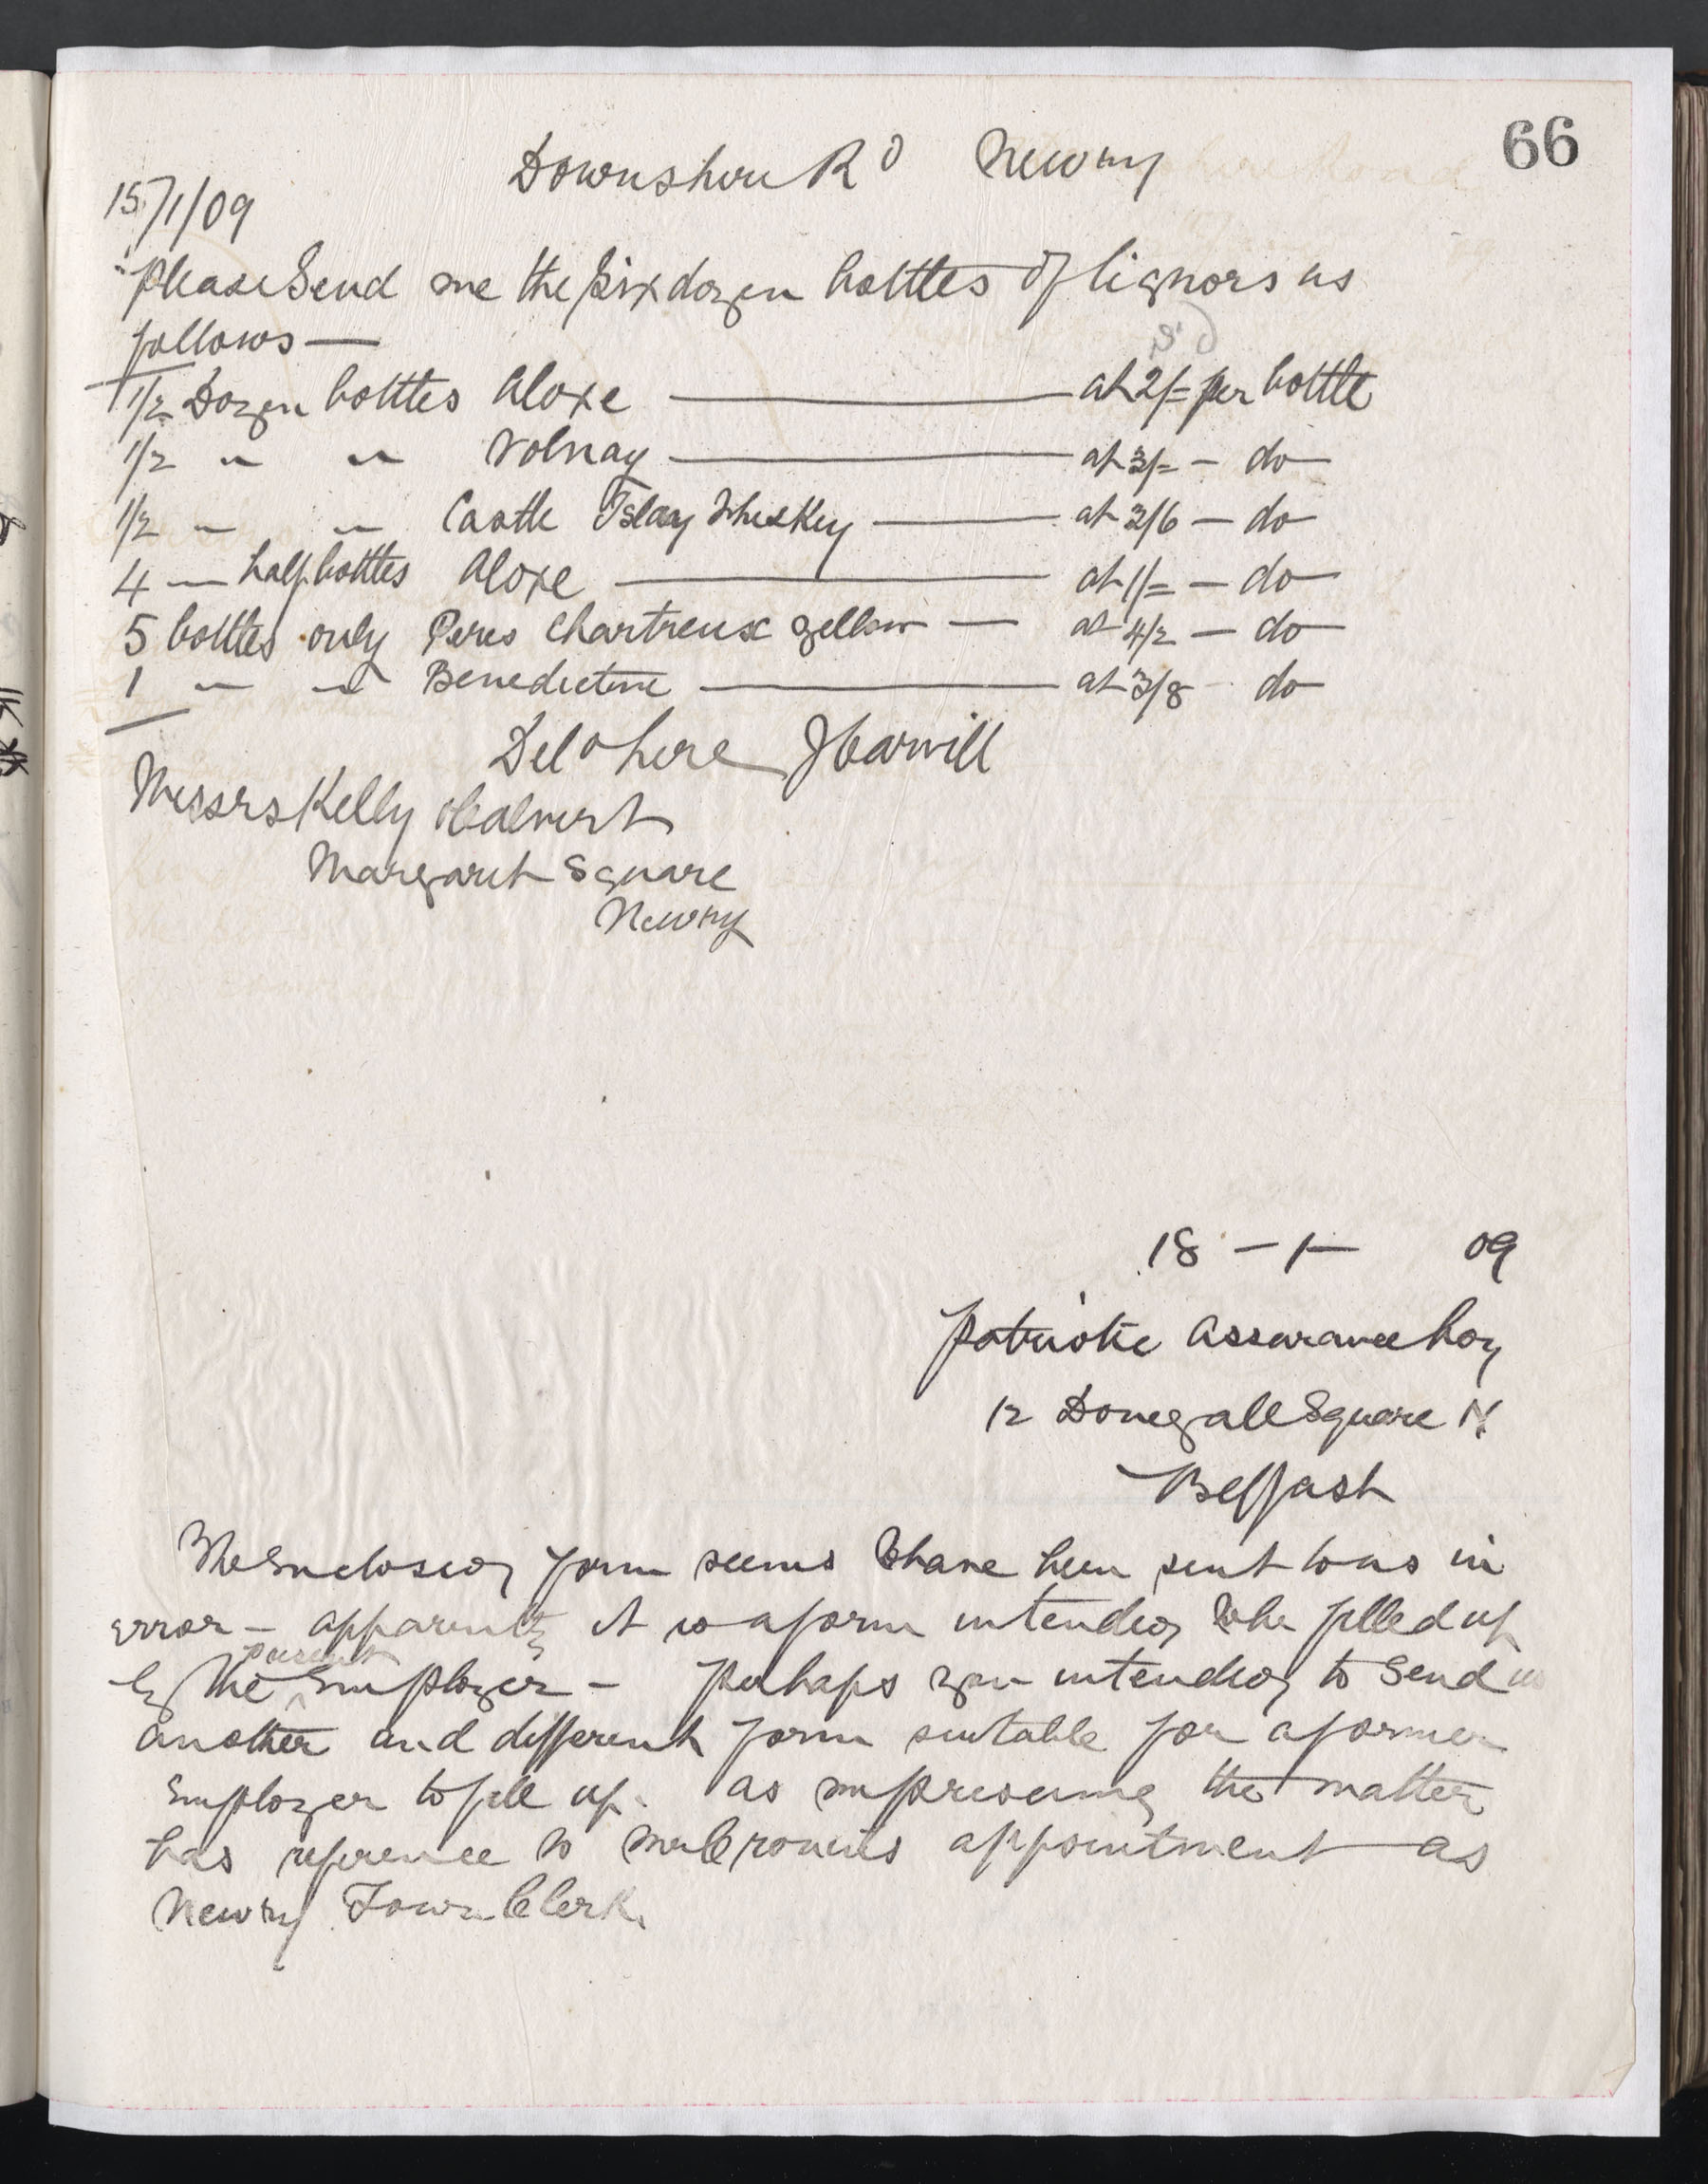 66
Downshire Rd Newry
15/1/09
Please Send me the Six dozen bottles of liqnors as
follows —
s d
1/2 Dozen bottles Aloxe — at 2/= per bottle
1/2 " " Volnay — at 3/= — do
1/2 " " Castle Islay Whiskey — at 3/6 — do
4 — half bottles Aloxe — at 1/= — do
5 bottles only Peres Chartreux yellow — at 4/2 — do
1 " " Benedictine — at 3/8 do
Del o here J Carvill
Messrs Kelly Calvert
Margaret Square
Newry
18 – 1 – 09
Patriotic Assurance Coy
12 Donegall Square N.
Belfast
The Enclosed form seems to have been sent to us in
error – apparently it is a form intended to be filled up
present
by the ^ Employer – Perhaps you intended to Send us
another and different form suitable for a former
Employer to fill up. as impresuming the matter
has reference to Mr Cronin's appointment as
Newry Town Clerk.